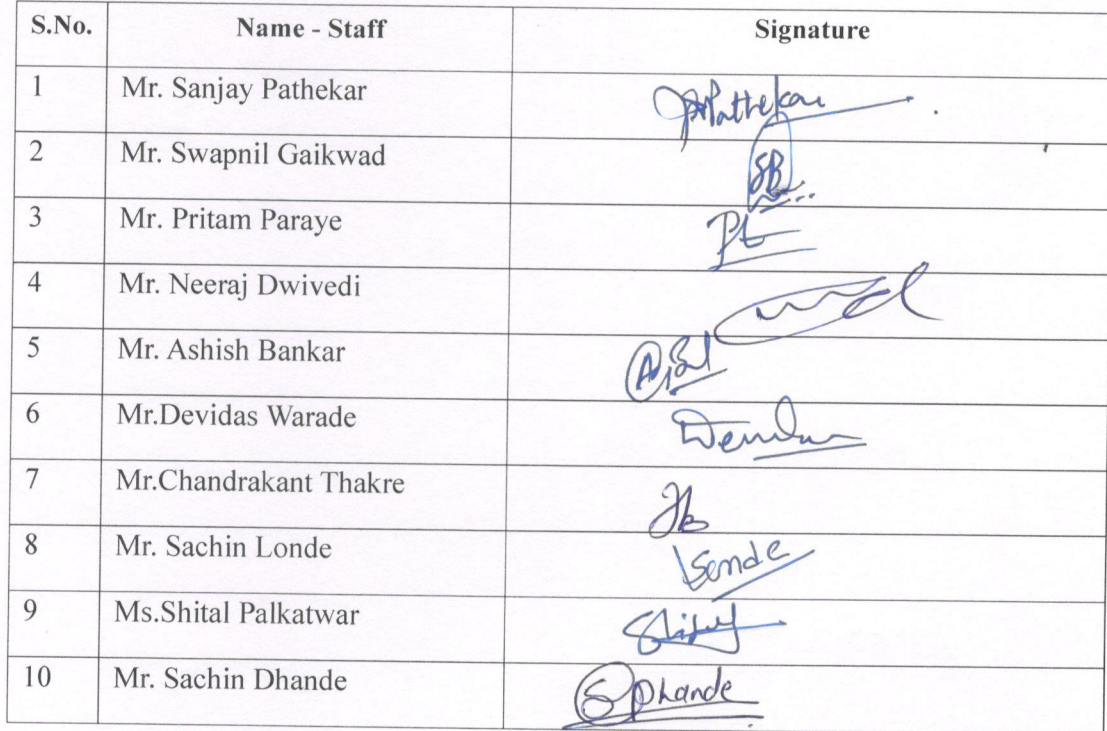 S.No. Name - Staff Signature
1 Mr. Sanjay Pathekar Pathekar
2 Mr. Swapnil Gaikwad SB
3 Mr. Pritam Paraye
4 Mr. Neeraj Dwivedi
5 Mr. Ashish Bankar
6 Mr.Devidas Warade
7 Mr.Chandrakant Thakre
8 Mr. Sachin Londe
9 Ms.Shital Palkatwar
10 Mr. Sachin Dhande S Dhande